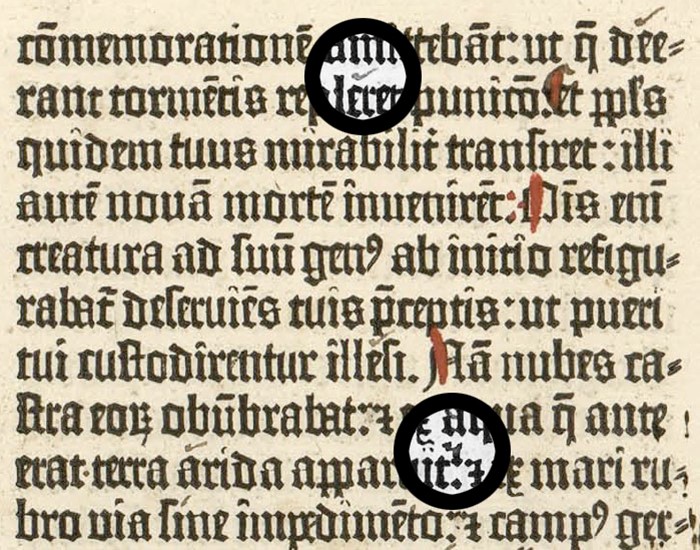 cõmemorationẽ amittebãt: ut q̃ dee⸗
rant tormẽtis replerent punitõ. et ppl's
quidem tuus mirabilit̃ transiret: illi
autẽ nouã mortẽ inuenirẽt: Oĩs eni̅
creatura ad suũ genꝰ ab initio refigu⸗
rabat̃ deseruiẽs tuis p̃ceptis: ut pueri
tui custodirentur illesi. Nã nubes ca⸗
stra eoꝝ obũbrabat: ⁊ ex aqua q̃ ante
erat terra arida apparuit: ⁊ ĩ mari ru⸗
bro uia sine impedimẽto: ⁊ campꝰ ger⸗